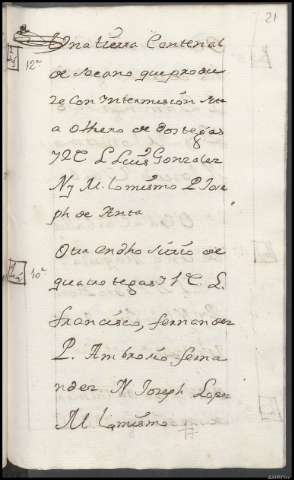 21
12ª Una tierra Centenal
de secano que produ
ze con Intermision sita
a Othero de dos tegas
y 2C L Luis Gonzalez
N y M lo mismo P Jose
ph de Anta
10ª Otra en dho sitio de
quatro tegas y 1C L
francisco, fernandez
P. Ambrosio ferna
ndez N Joseph Lopez
M lo mismo